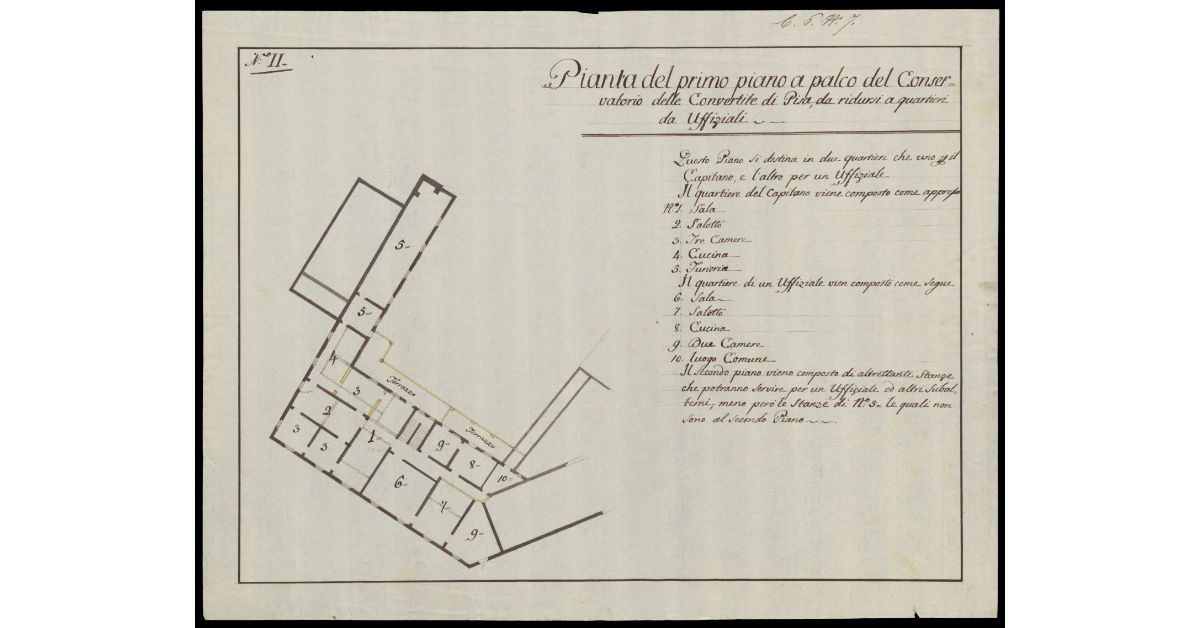 C. 6. N.º 7.
N.º II-
Pianta del primo piano a palco del Conser-
vatorio delle Convertite di Pisa, da ridursi a quartieri
da Uffiziali
Questo Piano si destina in due quartieri che uno p il
Capitano, e l'altro per un Uffiziale
Il quartiere del Capitano viene composto come appresso
N.º 1. Sala
2. Salotto
3. Tre Camere
4. Cucina
5. Furieria
Il quartiere di un Uffiziale vien composto come segue
6. Sala
7. Salotto
8. Cucina
9. Due Camere
10. luogo Comune
Il secondo piano viene composto di altrettante Stanze
che potranno servire per un Uffiziale ed altri Subal-
terni, meno però le Stanze di N.º 5- le quali non
sono al secondo Piano
5-
5-
4
Terrazzo
3
2
3
3
1
Terrazzo
9-
8-
10-
6-
7
9-